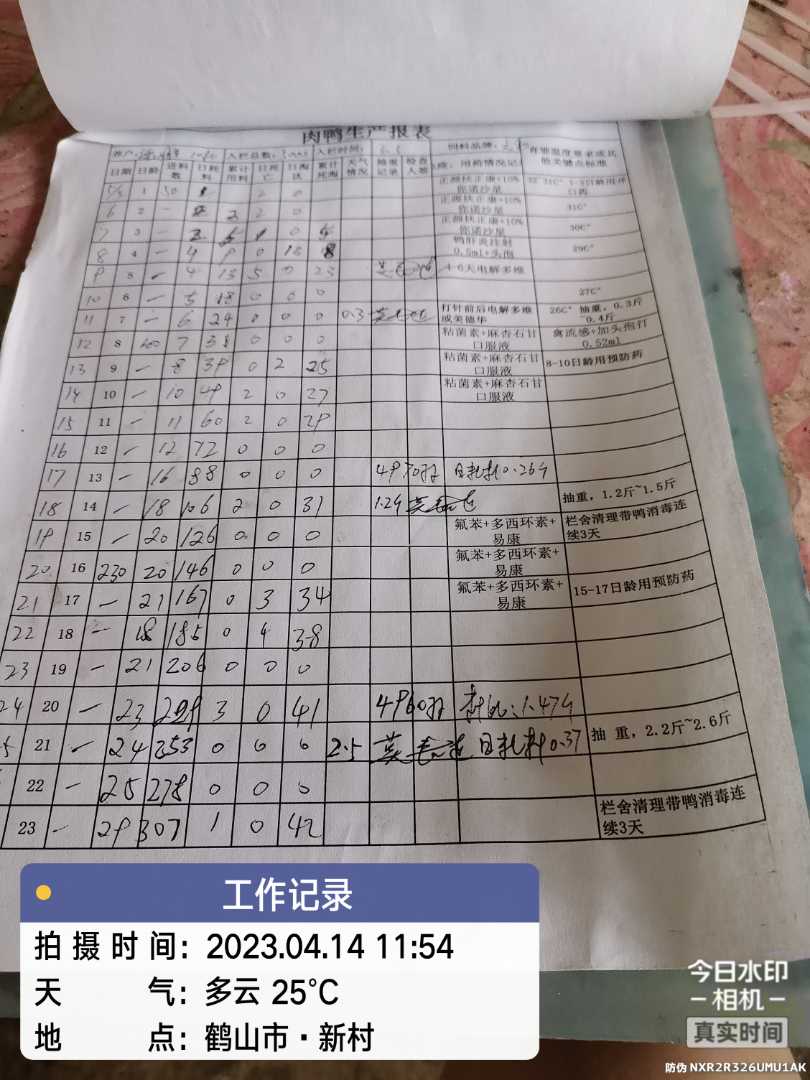 肉鸭生产报表
入栏总数: 入栏时间: 饲料品牌:
日期 日龄 进料数 日耗料 累计用料 日死亡 日淘汰 累计死淘 天气情况 抽发记录 检查人数 用药情况记
5/5 1 50 2 0 正源扶正康+10%你诺沙星 1-3日龄用开口药
6 2 - 2 2 0 正源扶正康+10%你诺沙星 31C°
7 3 - 正源扶正康+10%你诺沙星 30C°
8 4 - 4 9 0 13 8 鸭肝炎注射0.5ml+头孢 29C°
9 5 - 4 13 5 0 23 4-6天电解多维
10 6 - 5 18 0 0 0 27C°
11 7 - 6 24 0 0 0 0.3 打针前后电解多维或美德华 26C° 抽重,0.3斤~0.4斤
12 8 7 38 0 0 0 粘菌素+麻杏石甘口服液 禽流感+加头孢打0.52ml
13 9 - 8 39 0 2 25 粘菌素+麻杏石甘口服液 8-10日龄用预防药
14 10 - 10 49 2 0 27 粘菌素+麻杏石甘口服液
15 11 - 11 60 2 0 29
16 12 - 12 72 0 0 0
17 13 - 16 88 0 0 0 4970羽 日耗料0.26斤
18 14 - 18 106 2 0 31 1.2斤 抽重,1.2斤~1.5斤
19 15 - 20 126 0 0 0 氟苯+多西环素+易康 栏舍清理带鸭消毒连续3天
20 16 230 20 146 0 0 0 氟苯+多西环素+易康
21 17 - 21 167 0 3 34 氟苯+多西环素+易康 15-17日龄用预防药
22 18 - 18 185 0 4 38
23 19 - 21 206 0 0 0
24 20 - 23 229 3 0 41 4960羽 料比:1.47斤
21 - 24 253 0 0 0 2.5 日耗料0.37 抽重,2.2斤~2.6斤
22 - 25 278 0 0 0
23 - 29 307 1 0 42 栏舍清理带鸭消毒连续3天
工作记录
拍摄时间: 2023.04.14 11:54
天气: 多云 25°C
地点: 鹤山市·新村
今日水印
-相机-
真实时间
防伪 NXR2R326UMU1AK